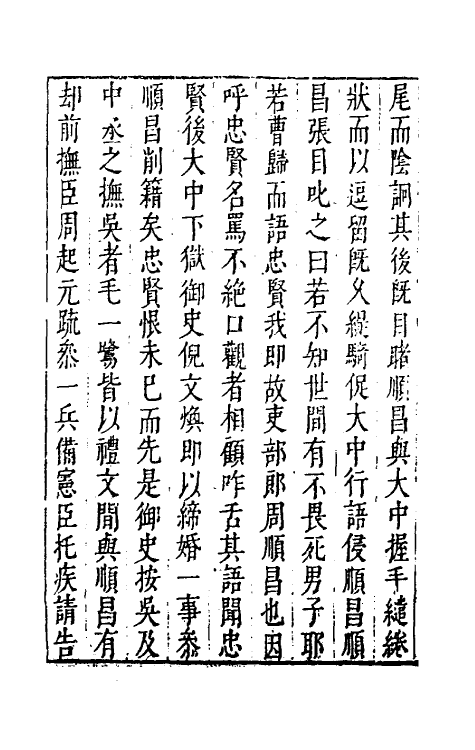 尾而陰詗其後旣目睹順昌與大中握手繾綣
狀而以逗留旣久緹騎促大中行語侵順昌順
昌張目叱之曰若不知世間有不畏死男子耶
若曹歸而語忠賢我卽故吏部郞周順昌也因
呼忠賢名罵不絕口觀者相顧咋舌其語聞忠
賢後大中下獄御史倪文煥卽以締婚一事叅
順昌削籍矣忠賢恨未已而先是御史按吳及
中丞之撫吳者毛一鷺皆以禮文間與順昌有
却前撫臣周起元疏叅一兵備憲臣托疾請告